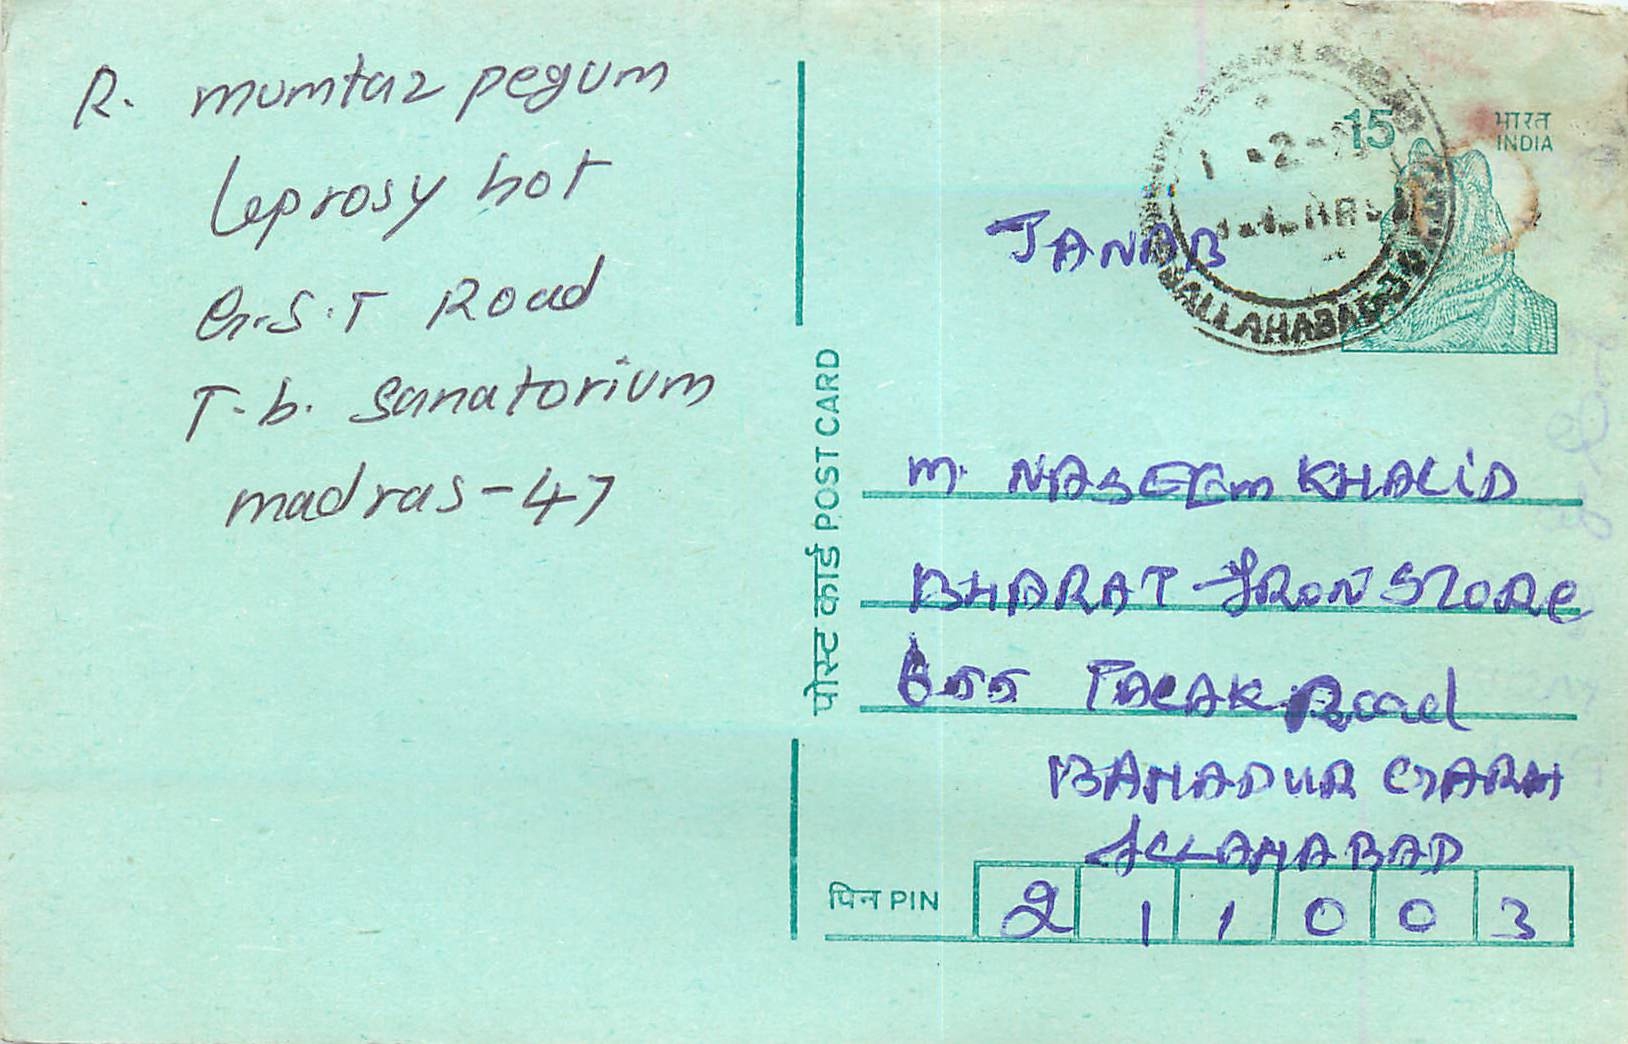 R. mumtaz pegum
Leprosy hot
G.S.T Road
T.b. sanatorium
madras-47
पोस्ट कार्ड POST CARD
15
भारत
INDIA
ALLAHABAD
JANAB
M. NASEEM KHALID
BHARAT IRON STORE
655 TALAK Road
BAHADUR GARH
ALLAHABAD
पिन PIN
211003